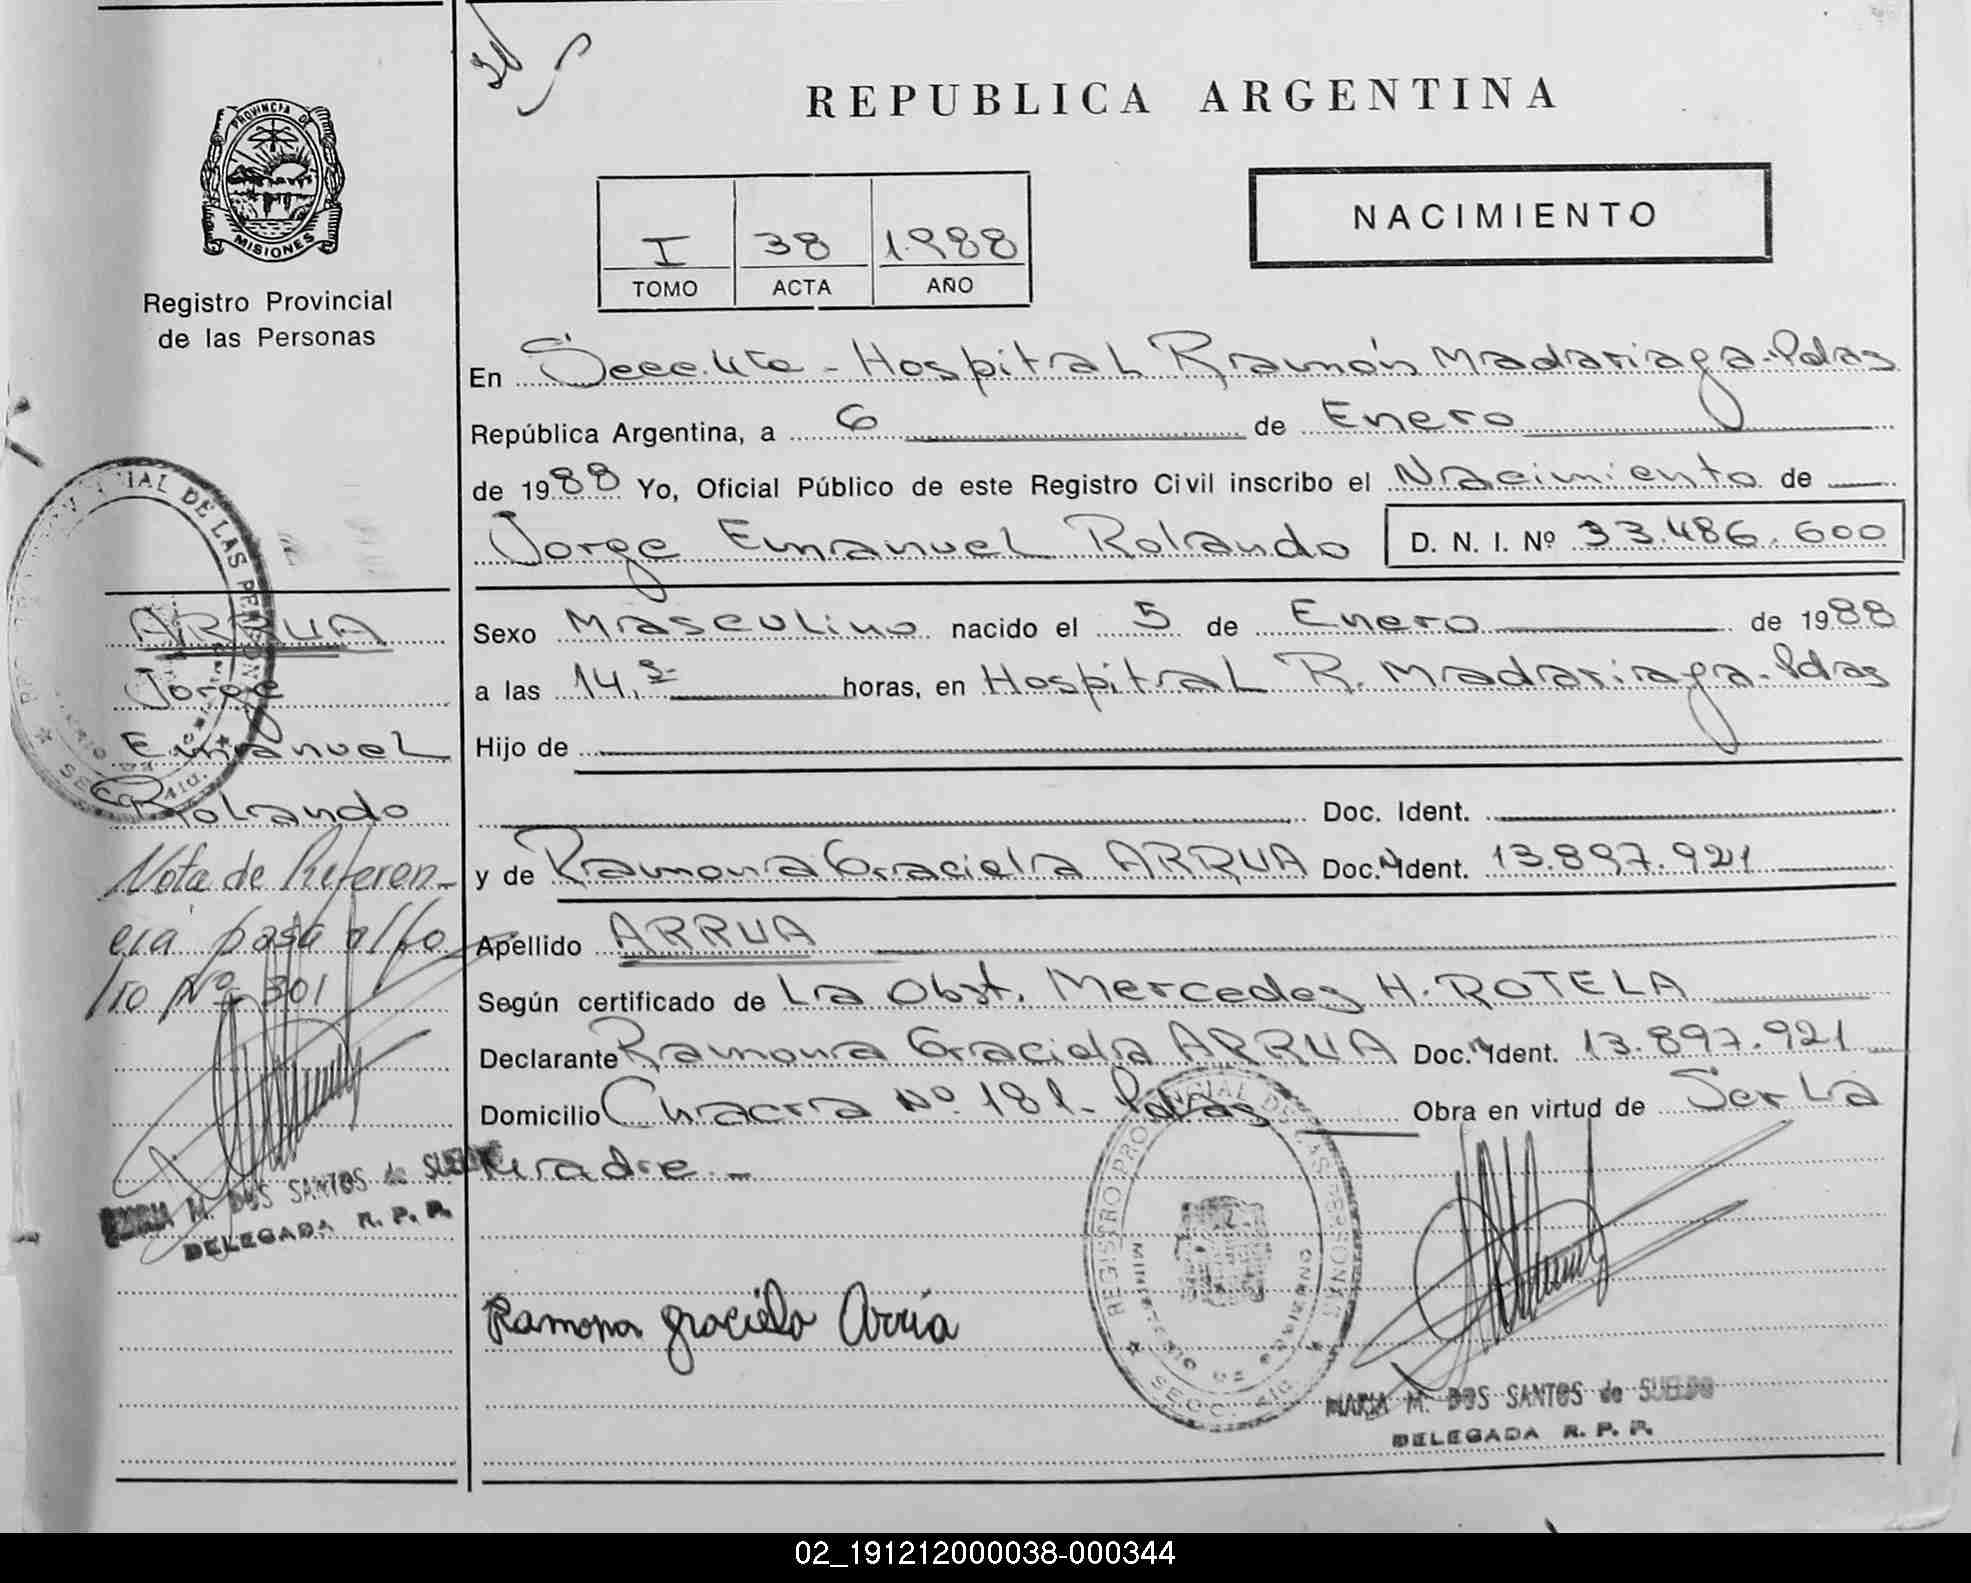 REPUBLICA ARGENTINA
PROVINCIA DE
MISIONES
Registro Provincial
de las Personas
I 38 1988
TOMO ACTA AÑO
NACIMIENTO
En Secc. 4ta - Hospital Ramón Madariaga - Pdas
República Argentina, a 6 de Enero
de 1988 Yo, Oficial Público de este Registro Civil inscribo el Nacimiento de
Jorge Emanuel Rolando D. N. I. Nº 33.486.600
Sexo Masculino nacido el 5 de Enero de 1988
a las 14, horas, en Hospital R. Madariaga - Pdas
Hijo de
Doc. Ident.
y de Ramona Graciela ARRUA Doc. Ident. 13.897.921
Apellido ARRUA
Según certificado de La Obst. Mercedes H. ROTELA
Declarante Ramona Graciela ARRUA Doc. Ident. 13.897.921
Domicilio Chacra Nº 181 - Pdas Obra en virtud de Ser La
Madre.-
Ramona graciela Arrúa
REGISTRO PROVINCIAL DE LAS PERSONAS
MINISTERIO DE GOBIERNO
MARIA M. DOS SANTOS de SUELDO
DELEGADA R. P. P.
ARRUA
Jorge
Emanuel
Rolando
Nota de Referen-
cia pasa al fo
lio Nº 301
MARIA M. DOS SANTOS de SUELDO
DELEGADA R. P. P.
02_191212000038-000344